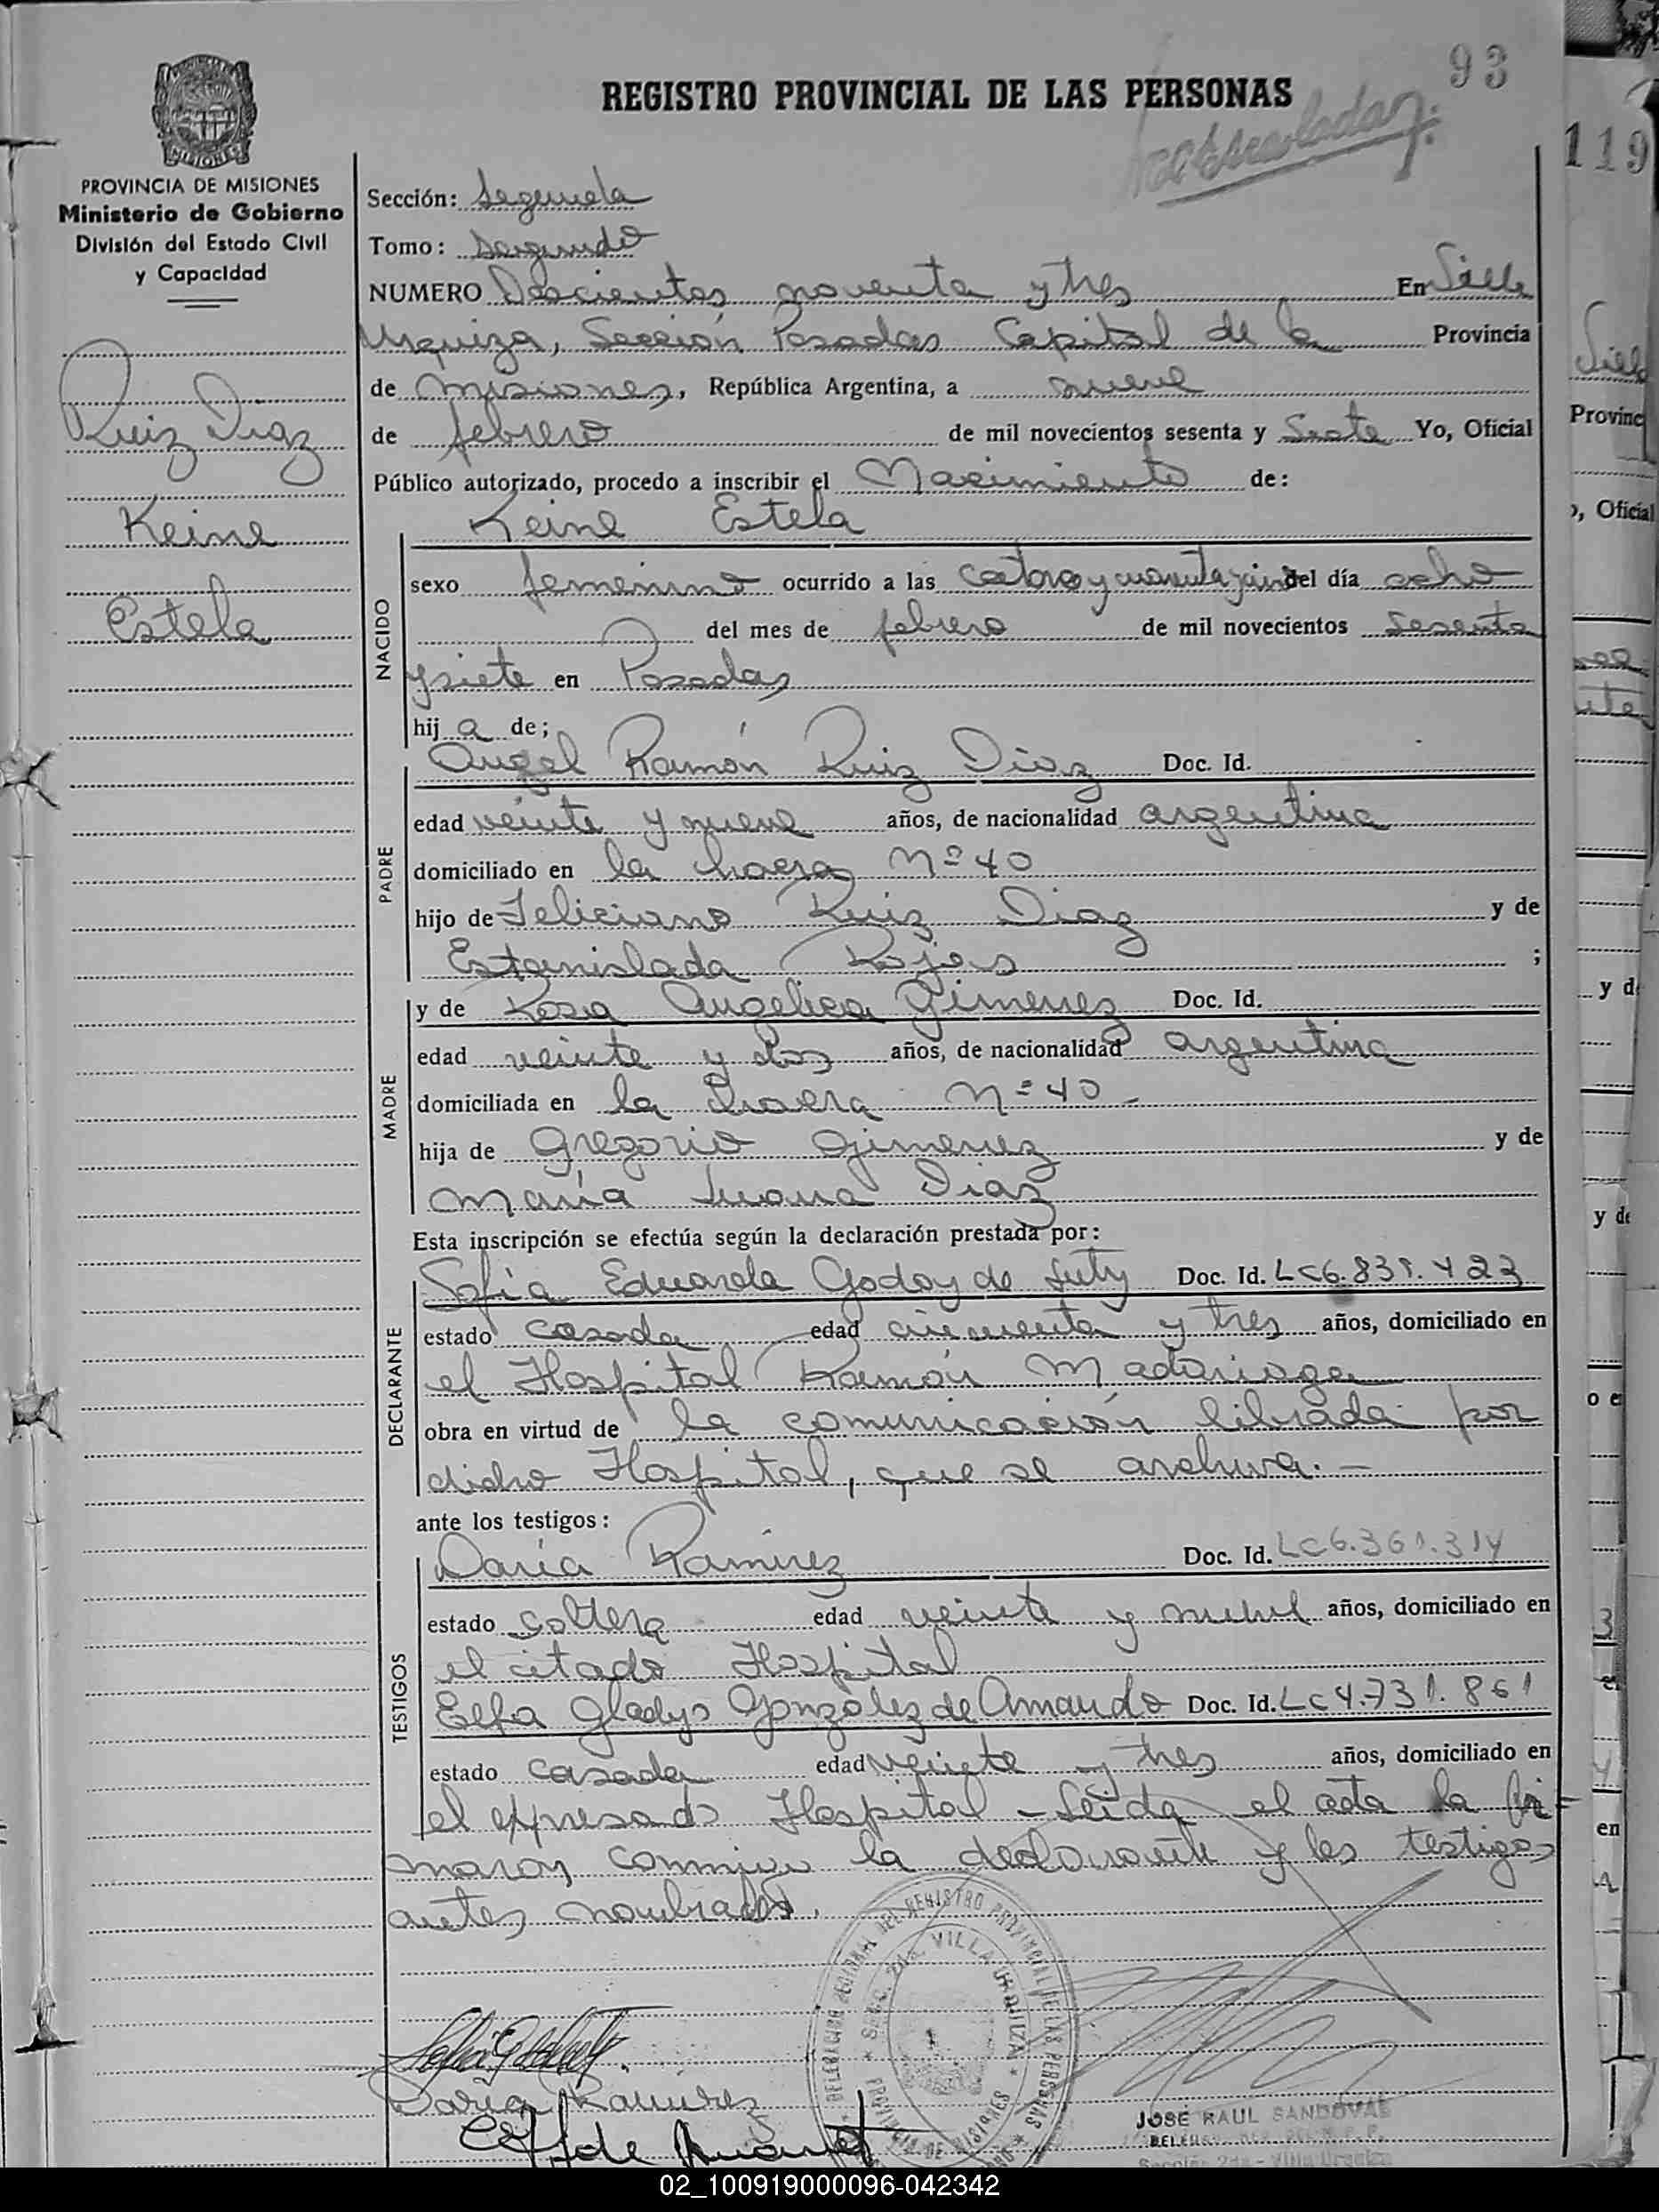 93
REGISTRO PROVINCIAL DE LAS PERSONAS
MISIONES
PROVINCIA DE MISIONES
Ministerio de Gobierno
División del Estado Civil
y Capacidad
Ruiz Diaz
Keine
Estela
Sección: Segunda
Tomo: Segundo
NUMERO Doscientos noventa y tres En Villa
Urquiza, Sección Posadas Capital de la Provincia
de Misiones, República Argentina, a nueve
de febrero de mil novecientos sesenta y Siete Yo, Oficial
Público autorizado, procedo a inscribir el Nacimiento de:
Keine Estela
NACIDO
sexo femenino ocurrido a las catorce y cuarenta y cinco del día ocho
del mes de febrero de mil novecientos sesenta
y siete en Posadas
hij a de;
PADRE
Angel Ramón Ruiz Diaz Doc. Id.
edad veinte y nueve años, de nacionalidad argentina
domiciliado en la chacra Nº 40
hijo de Feliciano Ruiz Diaz y de
Estanislada Rojas ;
MADRE
y de Rosa Angelica Gimenez Doc. Id.
edad veinte y dos años, de nacionalidad argentina
domiciliada en la chacra Nº 40
hija de Gregorio Gimenez y de
María Juana Diaz
Esta inscripción se efectúa según la declaración prestada por:
DECLARANTE
Sofía Eduarda Godoy de Doc. Id. LC 6.831.423
estado casada edad cincuenta y tres años, domiciliado en
el Hospital Ramón Madariaga
obra en virtud de la comunicación librada por
dicho Hospital, que se archiva. -
ante los testigos:
TESTIGOS
Daría Ramirez Doc. Id. LC 6.361.314
estado soltera edad veinte y nueve años, domiciliado en
el citado Hospital
Elfa Gladys Gonzalez de Amando Doc. Id. LC 4.731.861
estado casada edad veinte y tres años, domiciliado en
el expresado Hospital - Leída el acta la fir-
maron conmigo la declarante y los testigos
antes nombrados.
DELEGACION REGIONAL DEL REGISTRO PROVINCIAL DE LAS PERSONAS
SECC. 2da. VILLA URQUIZA
PROVINCIA DE MISIONES
Daría Ramirez
JOSE RAUL SANDOVAL
Sección 2da - Villa Urquiza
119
Provinc
Oficial
y d
y de
o e
en
02_100919000096-042342